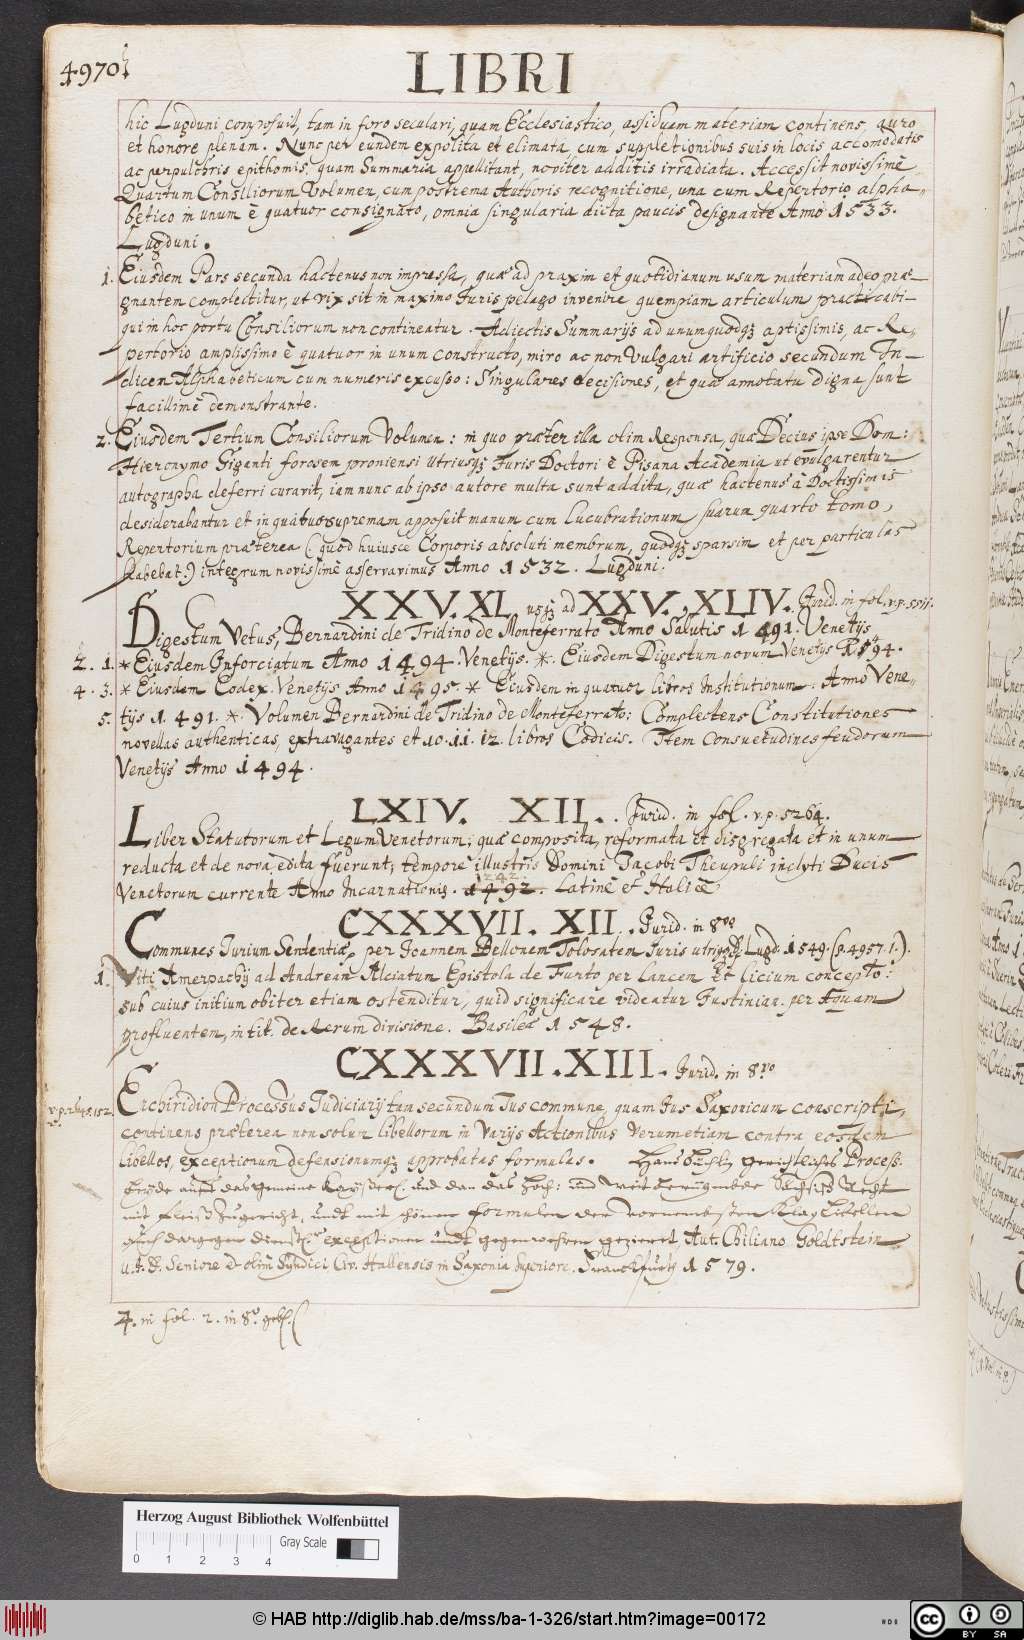 4970
LIBRI
hic Lugduni composuit, tam in foro seculari, quam Ecclesiastico, assiduam materiam continens, auro
et honore plenam. Nunc per eundem expolita et elimata cum suppletionibus suis in locis accomodatis
ac perpulchris epithomis, quam Summaria appellitant, noviter additis irradiata. Accessit novissimè
Quartum Consiliorum Volumen, cum postrema Authoris recognitione, una cum Repertorio alpha-
betico in unum è quatuor consignato, omnia singularia dicta paucis designante Anno 1533.
Lugduni.
1. Eiusdem Pars secunda hactenus non impressa, quæ ad praxim et quotidianum usum materiam adeo præ-
gnantem complectitur, ut vix sit in maximo Juris pelago invenire quempiam articulum practicabi-
qui in hoc portu Consiliorum non contineatur. Adiectis Summarijs ad unumquodq; aptissimis, ac Re-
pertorio amplissimo è quatuor in unum constructo, miro ac non vulgari artificio secundum In-
dicem Alphabeticum cum numeris excusso: Singulares decisiones, et quæ annotatu digna sunt
facillimè demonstrante.
2. Eiusdem Tertium Consiliorum Volumen: in quo præter illa olim Responsa, quæ Decius ipse Dom:
Hieronymo Giganti forosem proniensi Utriusq; Juris Doctori è Pisana Academia ut evulgarentur
autographa deferri curavit, iam nunc ab ipso autore multa sunt addita, quæ hactenus à Doctissimis
desiderabantur et in quatuor supremam apposuit manum cum lucubrationum suarum quarto tomo,
Repertorium præterea (quod huiusce Corporis absoluti membrum, quodq; sparsim et per particulas
habebat.) integrum novissimè asservavimus Anno 1532. Lugduni.
XXV. XL usq; ad XXV. XLIV. Jurid. in fol. v.p.
Digestum Vetus, Bernardini de Tridino de Monteferrato Anno Salutis 1491. Venetijs
2. 1. * Eiusdem Inforciatum Anno 1494. Venetijs. *. Eiusdem Digestum novum Venetijs 1494.
4. 3. * Eiusdem Codex Venetijs Anno 1495. * Eiusdem in quatuor libros Institutionum. Anno Vene-
5. tijs 1491. * Volumen Bernardini de Tridino de Monteferrato: Complectens Constitutiones
novellas authenticas, extravagantes et 10. 11. 12. libros Codicis. Item Consuetudines feudorum
Venetijs Anno 1494.
LXIV. XII. Jurid. in fol. v.p. 5264.
Liber Statutorum et Legum Venetorum; quæ composita, reformata et disgregata et in unum
reducta et de nova edita fuerunt; tempore illustris Domini Jacobi Theupuli inclyti Ducis
Venetorum currente Anno Incarnationis. 1492. 1242. Latinè et Italicè
CXXXVII. XII. Jurid. in 8vo
Communes Jurium Sententiæ, per Joannem Bellonem Tolosatem Juris utriusq; Lugd. 1549. (p. 4957. 1.)
1. Viti Amerpachij ad Andream Alciatum Epistola de Furto per Lancem Et Licium concepto:
sub cuius initium obiter etiam ostenditur, quid significare videatur Justinian. per Aquam
profluentem, in tit. de Rerum divisione. Basileæ 1548.
CXXXVII. XIII. Jurid. in 8vo
Enchiridion Processus Judiciarij tam secundum Jus commune, quam Jus Saxonicum conscripti,
continens præterea non solum libellorum in Varijs Actionibus Verumetiam contra eosdem
libellos, exceptionum defensionumq; approbatas formulas. gerichtliches Process.
beyde auff das gemeine Kayserl. und dan das
mit fleiß zugericht, undt mit schönen formulen der vornembsten Klag Libellen
auch dargegen exceptionen undt gegenwehren gezieret, Aut. Chiliano Goldtstein
U. J. D. Seniore & olim Syndici Civ. Hallensis in Saxonia Superiore. Franckfurth 1579.
4. in fol. 2. in 8o
Herzog August Bibliothek Wolfenbüttel
Gray Scale
0 1 2 3 4
© HAB http://diglib.hab.de/mss/ba-1-326/start.htm?image=00172
cc BY SA